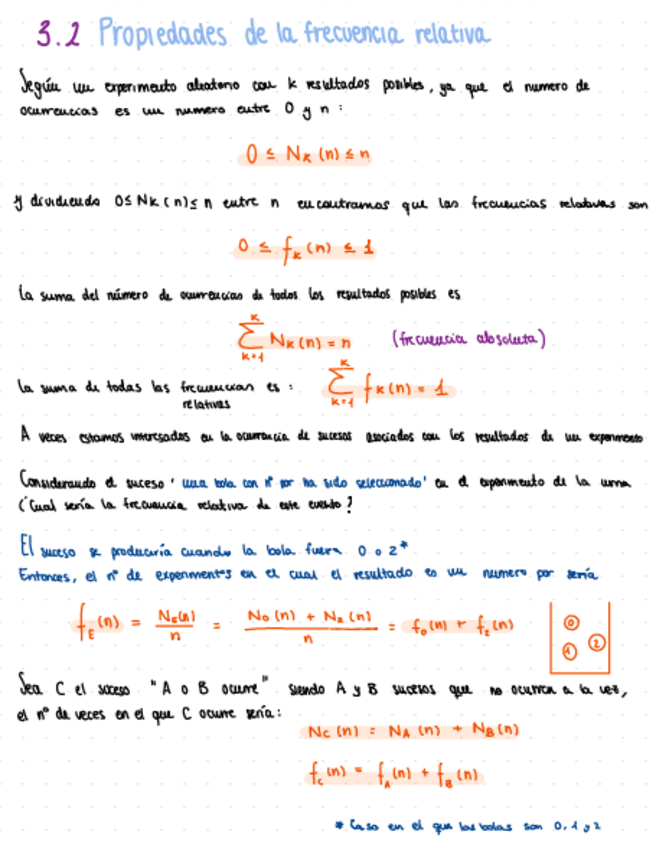 3.2 Propiedades de la frecuencia relativa
Según un experimento aleatorio con k resultados posibles, ya que el numero de
ocurrencias es un numero entre 0 y n :
0 ≤ Nk (n) ≤ n
y dividiendo 0 ≤ Nk (n) ≤ n entre n encontramos que las frecuencias relativas son
0 ≤ fk (n) ≤ 1
la suma del número de ocurrencias de todos los resultados posibles es
∑_{k=1}^{K} Nk (n) = n (frecuencia absoluta)
la suma de todas las frecuencias relativas es : ∑_{k=1}^{K} fk (n) = 1
A veces estamos interesados en la ocurrencia de sucesos asociados con los resultados de un experimento
Considerando el suceso ' una bola con nº par ha sido seleccionado' en el experimento de la urna
¿Cual sería la frecuencia relativa de este evento?
El suceso se produciría cuando la bola fuera 0 o 2*
Entonces, el nº de experimentos en el cual el resultado es un numero par sería
f_E (n) = N_E(n)/n = (N₀ (n) + N₂ (n))/n = f₀ (n) + f₂ (n)
0
1 2
Sea C el suceso "A o B ocurre" siendo A y B sucesos que no ocurren a la vez,
el nº de veces en el que C ocurre sería:
Nc (n) = N_A (n) + N_B (n)
f_c (n) = f_A (n) + f_B (n)
* Caso en el que las bolas son 0, 1 y 2